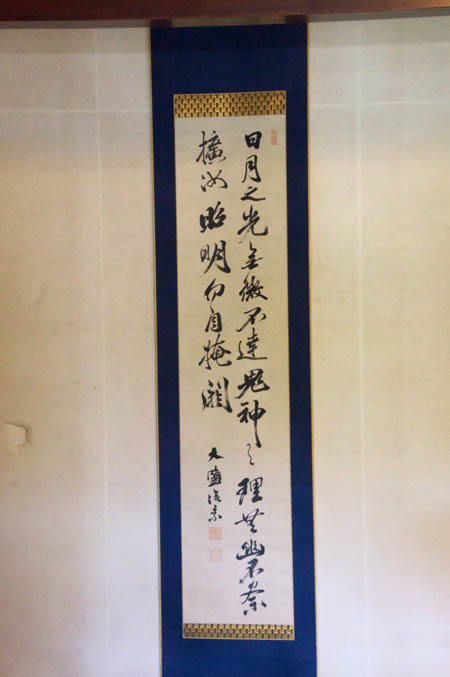 日月之光無微不達鬼神之理無幽不察
擴汝昭明勿自掩
大鹽後素